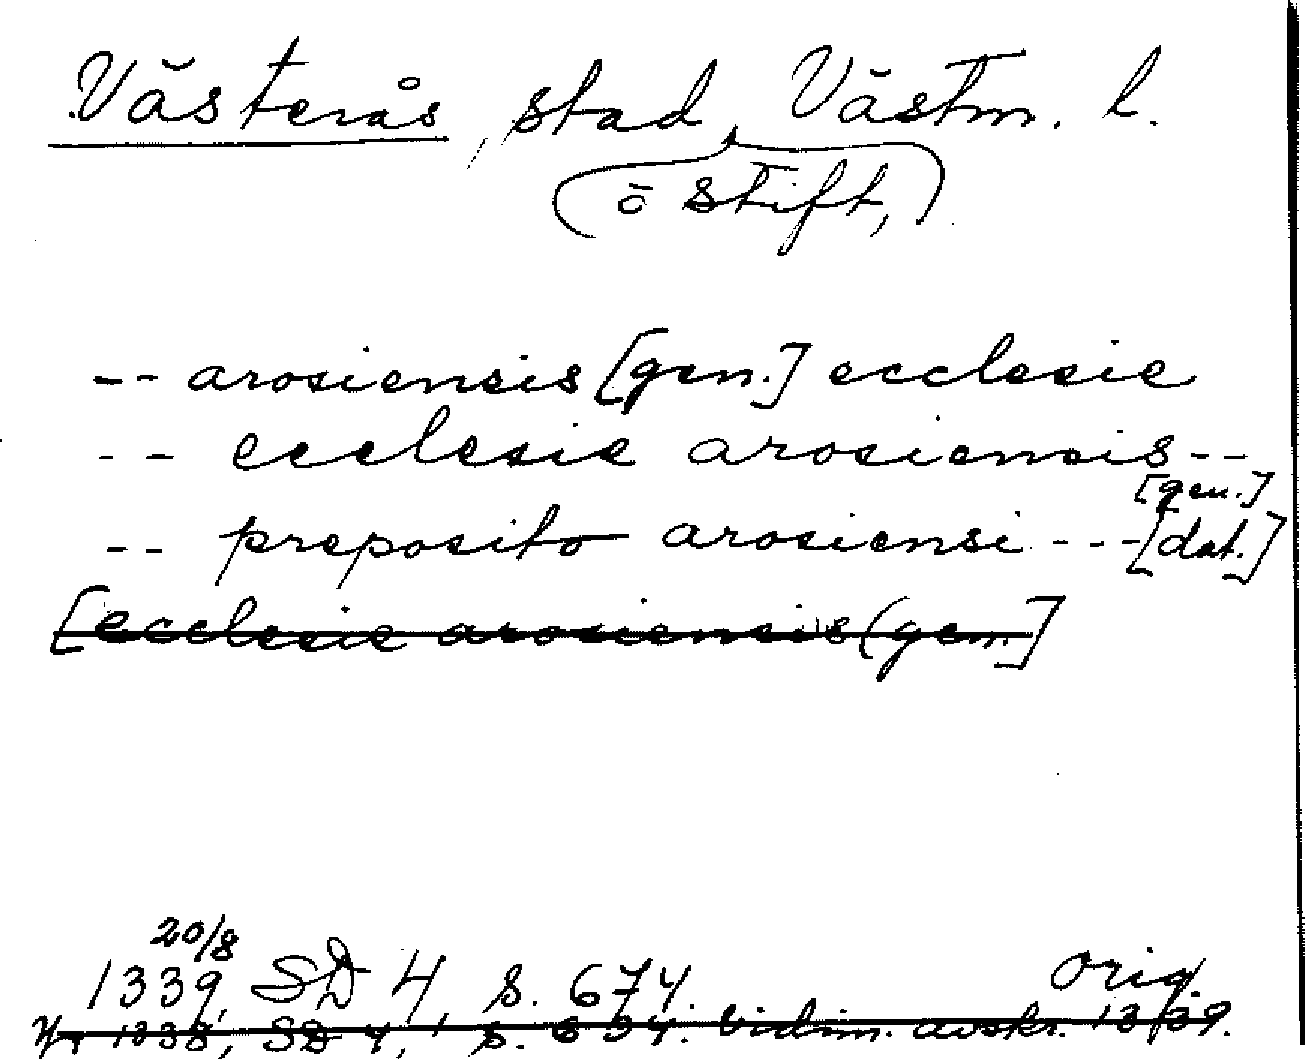 Västerås, stad, Västm. l.
(ō stift,)
-- arosiensis [gen.] ecclesie
-- ecclesie arosiensis --
[gen.]
-- preposito arosiensi --- [dat.]
[ecclesie arosiensis (gen.]
20/8
1339, SD 4, s. 674. orig.
1338, SD 4, s. 634. Vidim. avskr. 1339.